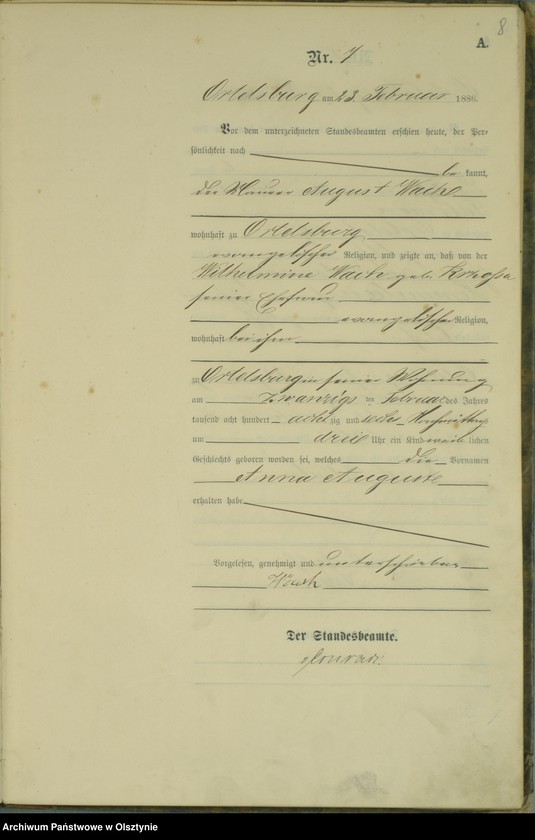 8
A.
Nr. 7
Ortelsburg am 23. Februar 1886.
Vor dem unterzeichneten Standesbeamten erschien heute, der Per-
sönlichkeit nach
be kannt,
der Maurer August Wach
wohnhaft zu Ortelsburg
evangelischer Religion, und zeigte an, daß von der
Wilhelmine Wach geb.
seiner Ehefrau
evangelischer Religion,
wohnhaft bei ihm
zu Ortelsburg in seiner Wohnung
am zwanzigs ten Februar des Jahres
tausend acht hundert acht zig und sechs Nachmittags
um drei Uhr ein Kind weib lichen
Geschlechts geboren worden sei, welches die Vornamen
Anna Auguste
erhalten habe
Vorgelesen, genehmigt und unterschrieben
Wach
Der Standesbeamte.
Archiwum Państwowe w Olsztynie